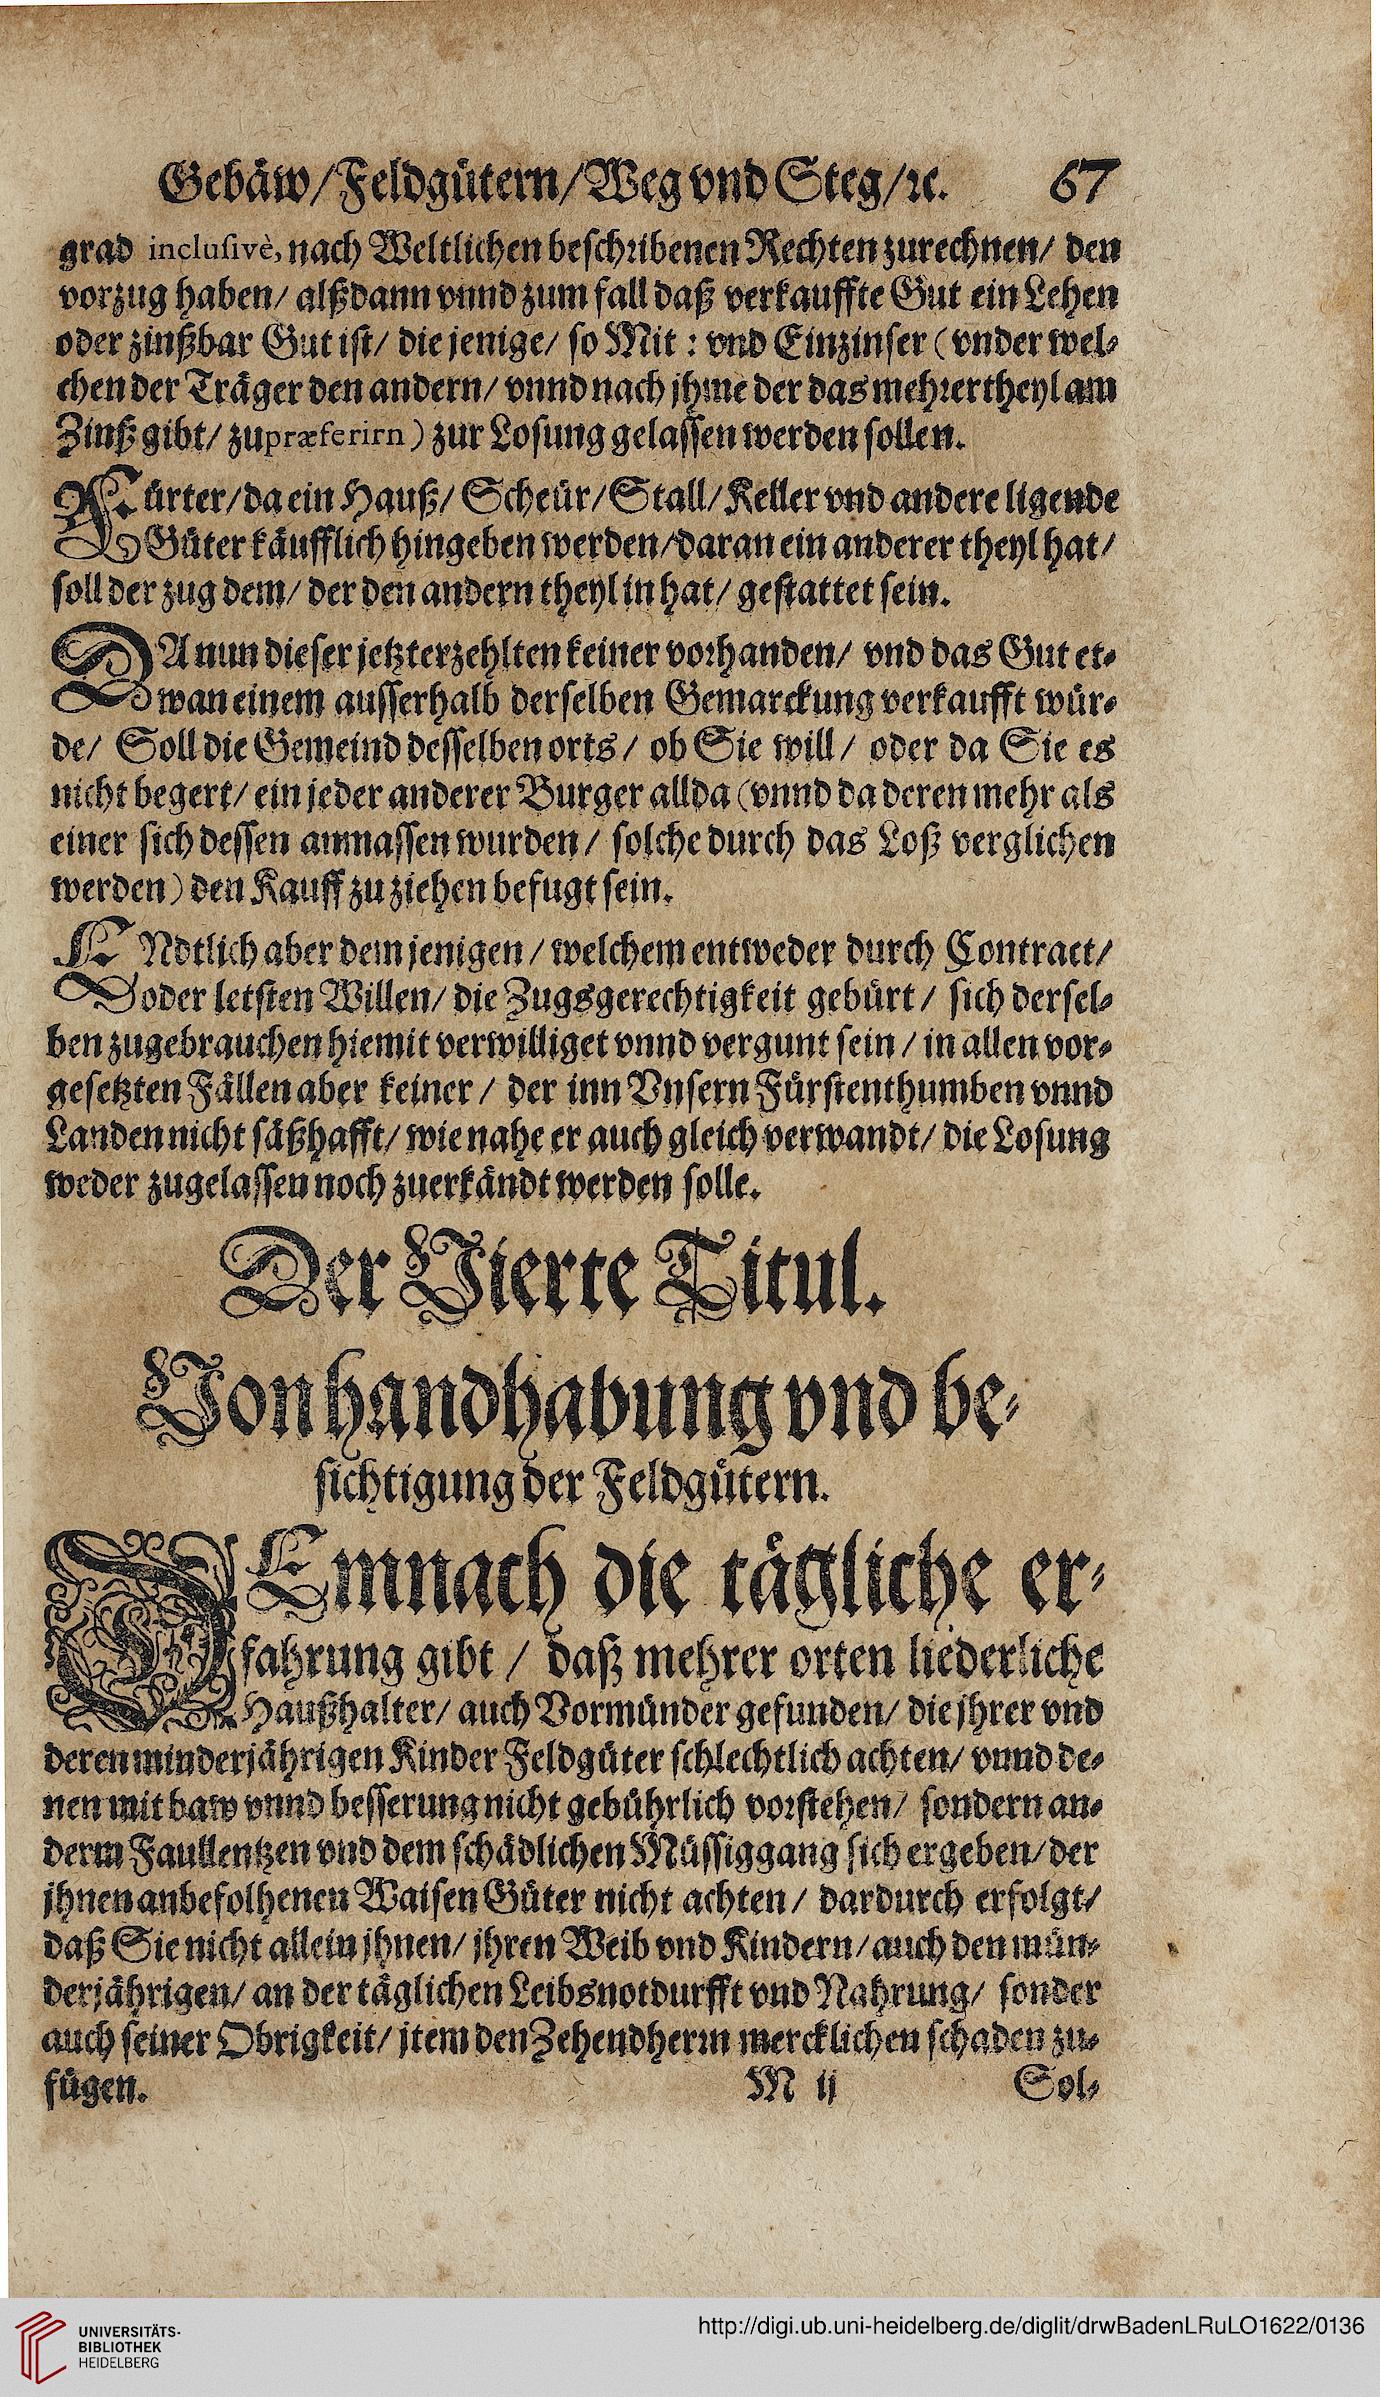 Gebäw/Feldgütern/Weg vnd Steg/ꝛc. 67
grad inclusivè, nach Weltlichen beschribenen Rechten zurechnen/ den
vorzug haben/ alßdann vnnd zum fall daß verkauffte Gut ein Lehen
oder zinßbar Gut ist/ die jenige/ so Mit: vnd Einzinser (vnder wel-
chen der Träger den andern/ vnnd nach jhme der das mehrertheyl am
Zinß gibt/ zu præferirn) zur Losung gelassen werden sollen.
Fürter/ da ein Hauß/ Scheür/ Stall/ Keller vnd andere ligende
Güter käufflich hingeben werden/ daran ein anderer theyl hat/
soll der zug dem/ der den andern theyl in hat/ gestattet sein.
DA nun dieser jetzterzehlten keiner vorhanden/ vnd das Gut et-
wan einem ausserhalb derselben Gemarckung verkaufft wür-
de/ Soll die Gemeind desselben orts/ ob Sie will/ oder da Sie es
nicht begert/ ein jeder anderer Burger allda (vnnd da deren mehr als
einer sich dessen anmassen wurden/ solche durch das Loß verglichen
werden) den Kauff zu ziehen befugt sein.
ENdtlich aber dem jenigen/ welchem entweder durch Contract/
oder letsten Willen/ die Zugsgerechtigkeit gebürt/ sich dersel-
ben zugebrauchen hiemit verwilliget vnnd vergunt sein/ in allen vor-
gesetzten Fällen aber keiner/ der inn Vnsern Fürstenthumben vnnd
Landen nicht säßhafft/ wie nahe er auch gleich verwandt/ die Losung
weder zugelassen noch zuerkändt werden solle.
Der Vierte Titul.
Von handhabung vnd be-
sichtigung der Feldgütern.
DEmnach die tägliche er-
fahrung gibt/ daß mehrer orten liederliche
Haußhalter/ auch Vormünder gefunden/ die jhrer vnd
deren minderjährigen Kinder Feldgüter schlechtlich achten/ vnnd de-
nen mit baw vnnd besserung nicht gebührlich vorstehen/ sondern an-
derm Faullentzen vnd dem schädlichen Müssiggang sich ergeben/ der
jhnen anbefolhenen Waisen Güter nicht achten/ dardurch erfolgt/
daß Sie nicht allein jhnen/ jhren Weib vnd Kindern/ auch den mün-
derjährigen/ an der täglichen Leibsnotdurfft vnd Nahrung/ sonder
auch seiner Obrigkeit/ jtem den Zehendherrn mercklichen schaden zu-
fügen. M ij Sol-
UNIVERSITÄTS-
BIBLIOTHEK
HEIDELBERG
http://digi.ub.uni-heidelberg.de/diglit/drwBadenLRuLO1622/0136